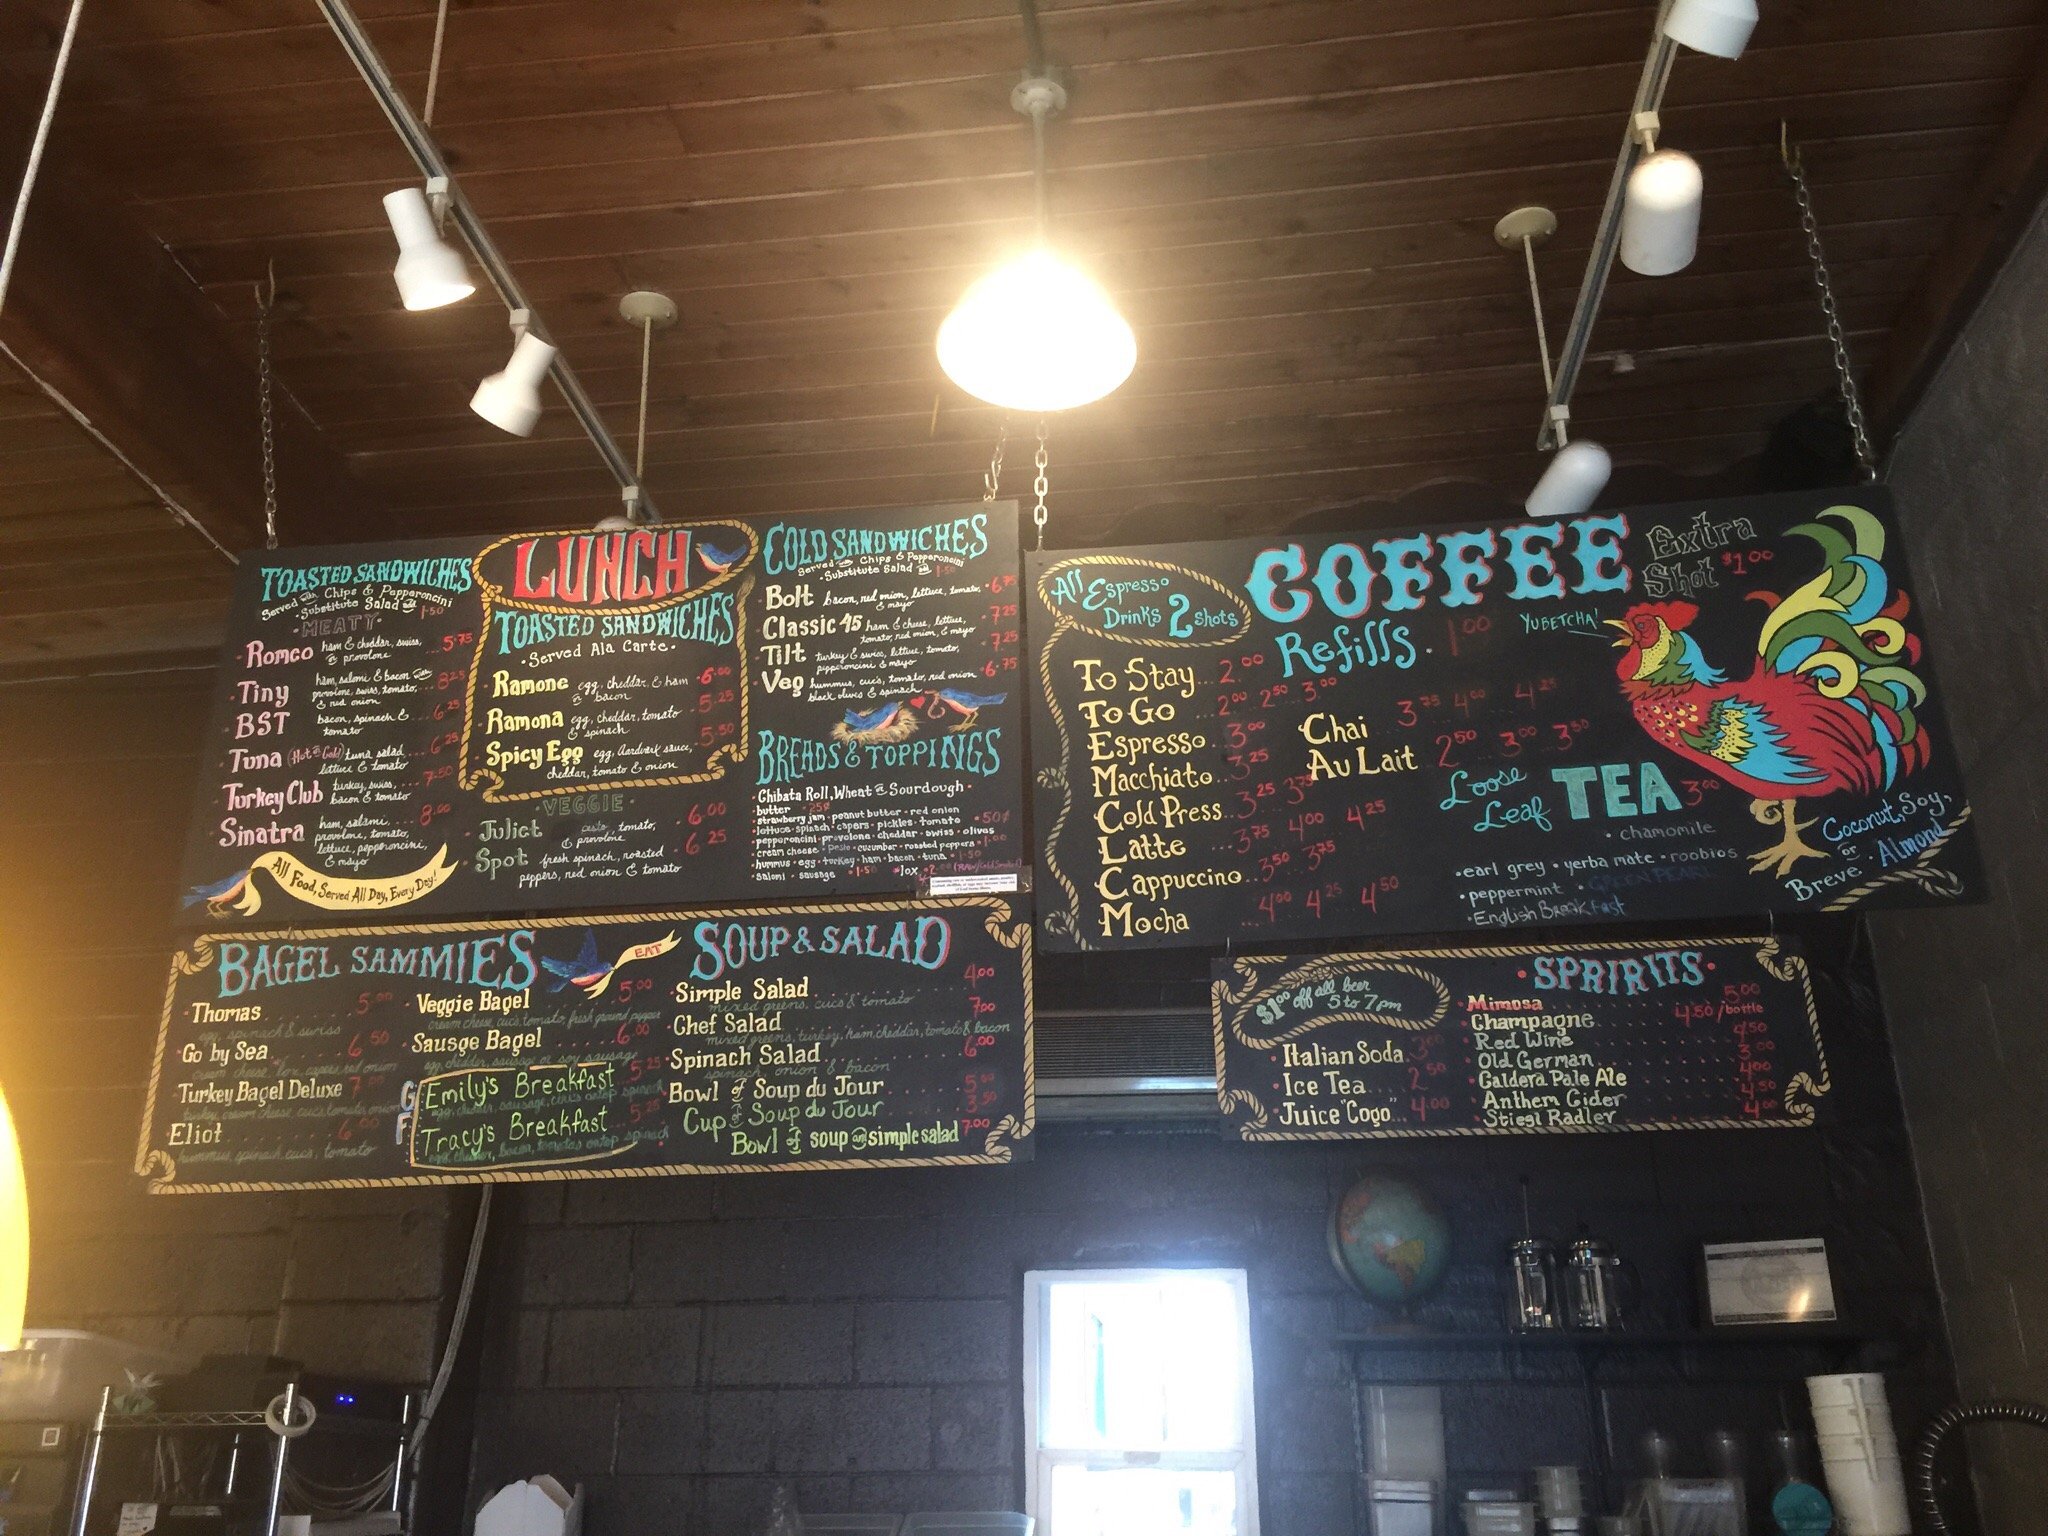 TOASTED SANDWICHES
Served with Chips & Pepperoncini
Substitute Salad add 1.50
• MEATY •
Romeo ham & cheddar, swiss, or provolone 5.75
Tiny ham, salami & bacon with provolone, swiss, tomato, & red onion 8.25
BST bacon, spinach & tomato 6.25
Tuna (Hot or Cold) tuna salad lettuce & tomato 6.25
Turkey Club turkey, swiss, bacon & tomato 7.50
Sinatra ham, salami, provolone, tomato, lettuce, pepperoncini, & mayo 8.00
All Food, Served All Day, Every Day!
LUNCH
TOASTED SANDWICHES
• Served Ala Carte •
Ramone egg, cheddar, & ham or bacon 6.00
Ramona egg, cheddar, tomato & spinach 5.25
Spicy Egg egg, Aardvark sauce, cheddar, tomato & onion 5.50
• VEGGIE •
Juliet pesto, tomato, & provolone 6.00
Spot fresh spinach, roasted peppers, red onion & tomato 6.25
COLD SANDWICHES
Served with Chips & Pepperoncini
• Substitute Salad add 1.50
Bolt bacon, red onion, lettuce, tomato, & mayo 6.75
Classic 45 ham & cheese, lettuce, tomato, red onion, & mayo 7.25
Tilt turkey & swiss, lettuce, tomato, pepperoncini & mayo 7.25
Veg hummus, cucs, tomato, red onion black olives & spinach 6.75
BREADS & TOPPINGS
• Chibata Roll, Wheat or Sourdough •
butter • 25¢
strawberry jam • peanut butter • red onion
lettuce • spinach • capers • pickles • tomato • 50¢
pepperoncini • provolone • cheddar • swiss • olives
cream cheese • pesto • cucumber • roasted peppers • 1.00
hummus • egg • turkey • ham • bacon • tuna • 1.50
salami • sausage • 1.50 • lox • 2
BAGEL SAMMIES
EAT
Thomas 5.00
egg spinach & swiss
Go by Sea 6.50
cream cheese, lox, capers, red onion
Turkey Bagel Deluxe 7.00
turkey, cream cheese, cucs, tomato, onion
Eliot 6.00
hummus, spinach, cucs, tomato
Veggie Bagel 5.00
cream cheese, cucs, tomato, fresh ground pepper
Sausge Bagel 6.00
egg, cheddar, sausage or soy sausage
Emily's Breakfast 5.25
Tracy's Breakfast 5.25
SOUP & SALAD
Simple Salad 4.00
mixed greens, cucs & tomato
Chef Salad 7.00
mixed greens, turkey, ham, cheddar, tomato & bacon
Spinach Salad 6.00
spinach, onion & bacon
Bowl of Soup du Jour 5.00
Cup of Soup du Jour 3.50
Bowl of soup and simple salad 7.00
All Espresso
Drinks 2 shots
COFFEE
Extra
Shot $1.00
Refills . 1.00
YUBETCHA'
To Stay 2.00
To Go 2.00 2.50 3.00
Espresso 3.00
Macchiato 3.25
Cold Press 3.25 3.75
Latte 3.75 4.00 4.25
Cappuccino 3.50 3.75
Mocha 4.00 4.25 4.50
Chai 3.75 4.00 4.25
Au Lait 2.50 3.00 3.50
Loose
Leaf TEA 3.00
• chamomile
• earl grey • yerba mate • roobios
• peppermint •
• English Breakfast
Coconut, Soy,
or Almond
Breve
$1.00 off all beer
5 to 7pm
Italian Soda 3.00
Ice Tea 2.50
Juice "Cogo" 4.00
• SPRIRITS •
Mimosa 5.00
Champagne 4.50/bottle
Red Wine 4.50
Old German 3.00
Caldera Pale Ale 4.00
Anthem Cider 4.50
Stiegl Radler 4.00